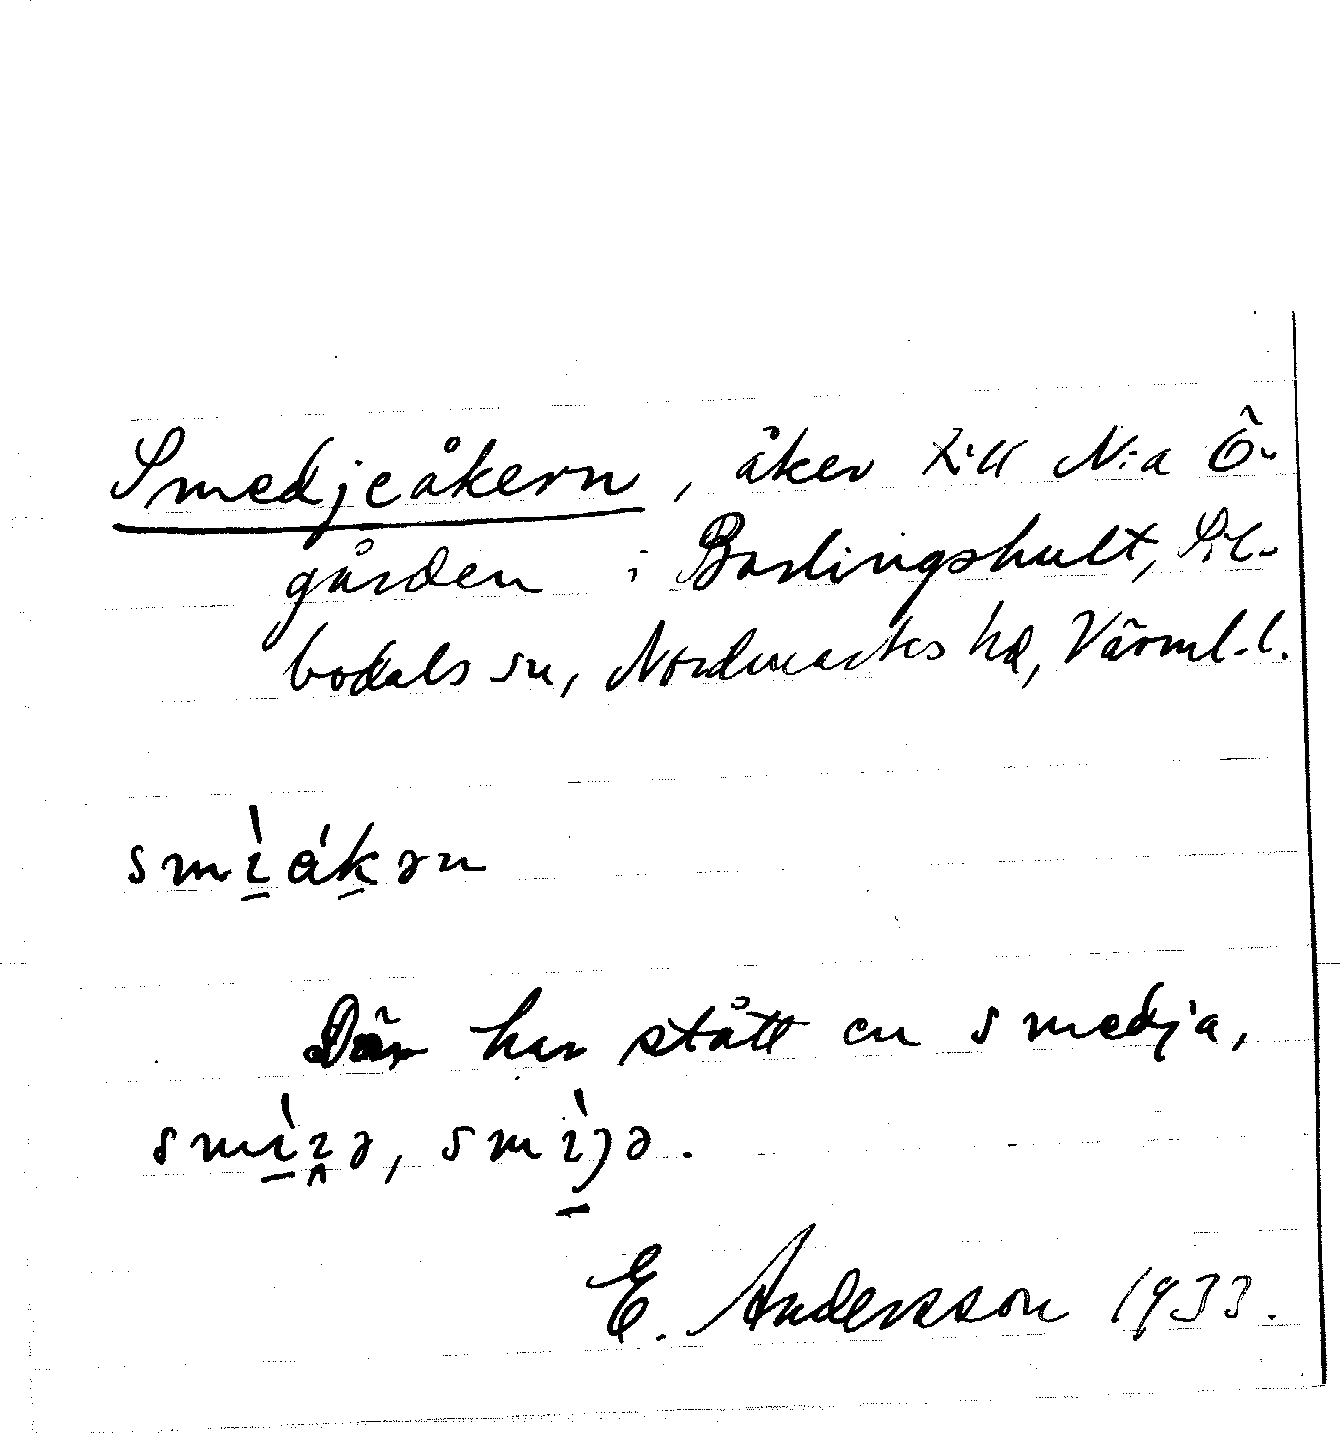 Smedjeåkern, åker till N:a Ö-
gården i Barlingshult, Sil-
bodals sn, Nordmarks hd, Värml.l.
smìákən
Där har stått en smedja,
smìɪə, smìȷə.
E. Andersson 1933.